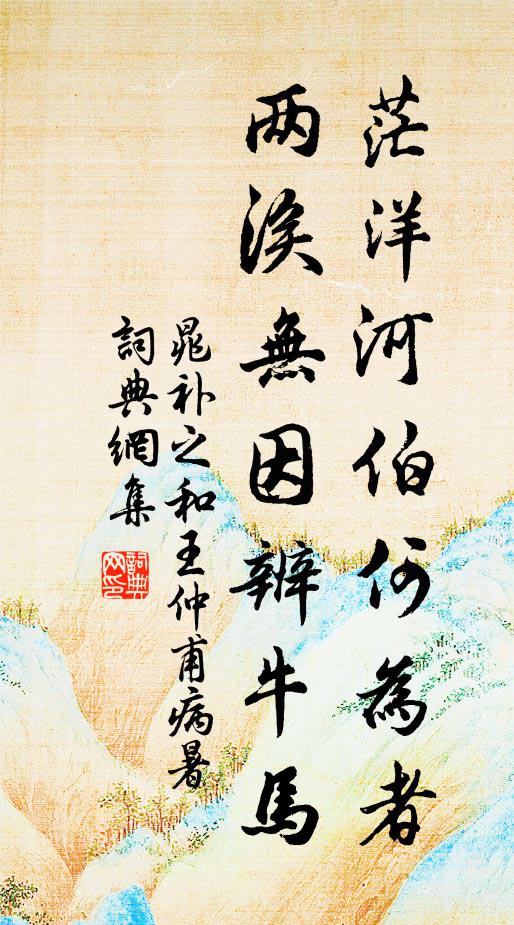 茫洋河伯何為者
两涘無因辨牛馬
晁补之和王仲甫病暑
詞典網集
詞典网印